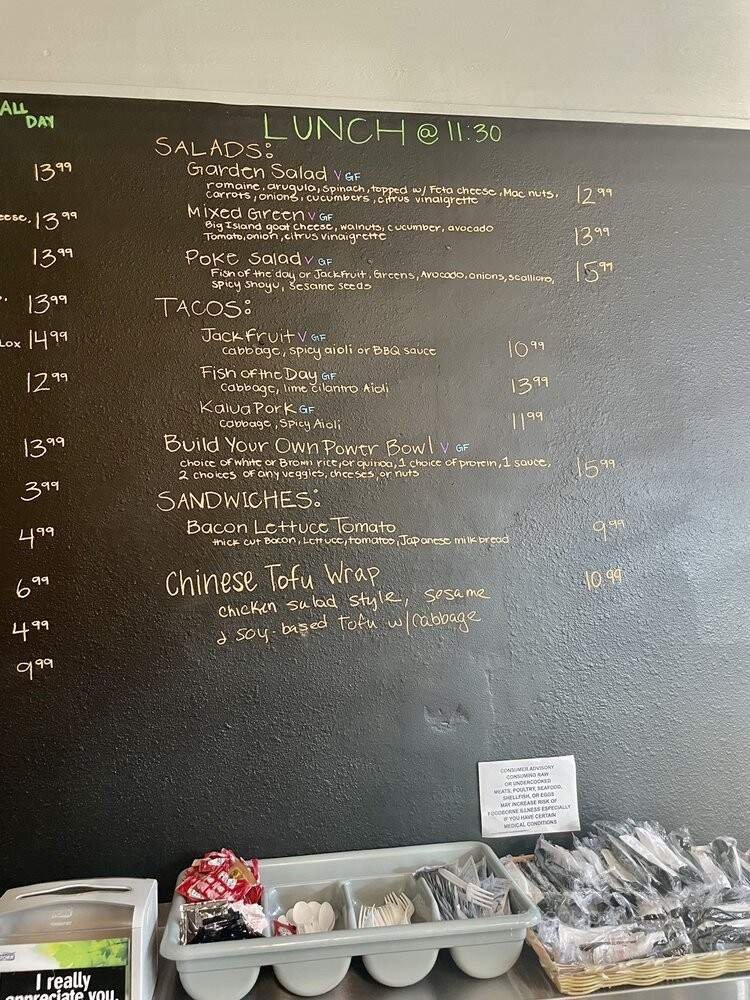 ALL
DAY
13⁹⁹
13⁹⁹
13⁹⁹
13⁹⁹
Lox 14⁹⁹
12⁹⁹
13⁹⁹
3⁹⁹
4⁹⁹
6⁹⁹
4⁹⁹
9⁹⁹
LUNCH @ 11:30
SALADS:
Garden Salad V GF
romaine, arugula, spinach, topped w/ Feta cheese, Mac nuts, 12⁹⁹
carrots, onions, cucumbers, citrus vinaigrette
Mixed Green V GF
Big Island goat cheese, walnuts, cucumber, avocado 13⁹⁹
Tomato, onion, citrus vinaigrette
Poke Salad V GF
Fish of the day or Jackfruit, Greens, Avocado, onions, scallions, 15⁹⁹
spicy shoyu, sesame seeds
TACOS:
Jackfruit V GF
cabbage, spicy aioli or BBQ sauce 10⁹⁹
Fish of the Day GF
cabbage, lime cilantro Aioli 13⁹⁹
Kalua Pork GF
cabbage, Spicy Aioli 11⁹⁹
Build Your Own Power Bowl V GF
choice of white or Brown rice, or quinoa, 1 choice of protein, 1 sauce, 15⁹⁹
2 choices of any veggies, cheeses, or nuts
SANDWICHES:
Bacon Lettuce Tomato 9⁹⁹
thick cut Bacon, Lettuce, tomatoe, Japanese milk bread
Chinese Tofu Wrap 10.99
chicken salad style, sesame
& soy-based tofu w/cabbage
CONSUMER ADVISORY
CONSUMING RAW
OR UNDERCOOKED
MEATS, POULTRY, SEAFOOD,
SHELLFISH, OR EGGS
MAY INCREASE RISK OF
FOODBORNE ILLNESS ESPECIALLY
IF YOU HAVE CERTAIN
MEDICAL CONDITIONS
I really
appreciate you.